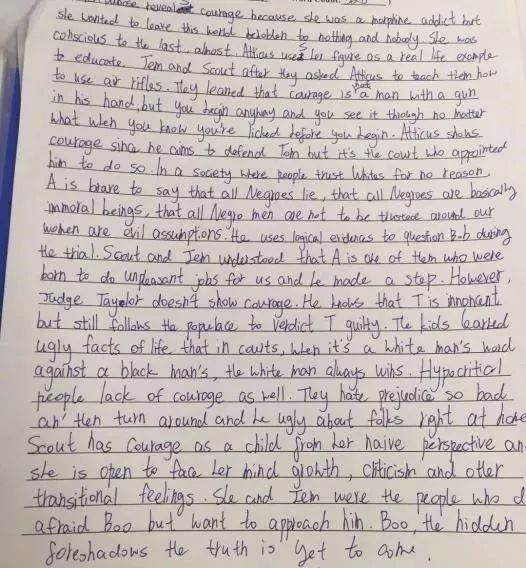 revealed courage because she was a morphine addict but
she wanted to leave this world beholden to nothing and nobody. She was
conscious to the last, almost. Atticus uses her figure as a real life example
to educate Jem and Scout after they asked Atticus to teach them how
to use air rifles. They learned that courage is not a man with a gun
in his hand, but you begin anyway and you see it through no matter
what when you know you're licked before you begin. Atticus shows
courage since he aims to defend Tom but it's the court who appointed
him to do so. In a society where people trust Whites for no reason,
A is brave to say that all Negroes lie, that all Negroes are basically
immoral beings, that all Negro men are not to be around our
women are evil assumptions. He uses logical evidence to question Bob during
the trial. Scout and Jem understood that A is one of them who were
born to do unpleasant jobs for us and he made a step. However,
Judge Taylor doesn't show courage. He knows that T is innocent
but still follows the populace to verdict T guilty. The kids learned
ugly facts of life, that in courts, when it's a white man's word
against a black man's, the white man always wins. Hypocritical
people lack of courage as well. They hate prejudice so bad
an' then turn around and be ugly about folks right at home
Scout has courage as a child from her naive perspective an
she is open to face her mind growth, criticism and other
transitional feelings. She and Jem were the people who d
afraid Boo but want to approach him. Boo, the hidden
foreshadows the truth is yet to come.